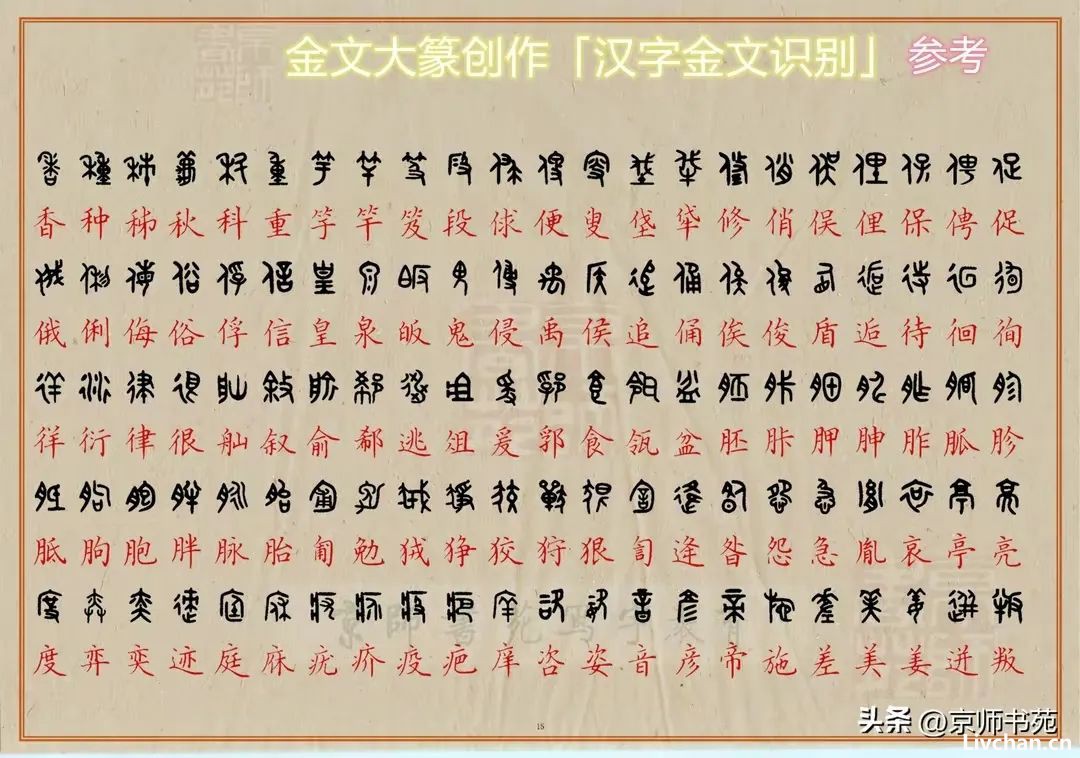 金文大篆创作「汉字金文识别」 参考
香 种 秫 秋 科 重 竽 竿 笈 段 俅 便 叟 垡 牮 修 俏 俣 俚 保 俜 促
俄 俐 侮 俗 俘 信 皇 泉 皈 鬼 侵 禹 侯 追 俑 俟 俊 盾 逅 待 徊 徇
徉 衍 律 很 舢 叙 俞 郗 逃 俎 爰 郛 食 瓴 盆 胚 胩 胛 胂 胙 胍 胗
胝 朐 胞 胖 脉 胎 匍 勉 狨 狰 狡 狩 狠 訇 逄 昝 怨 急 胤 哀 亭 亮
度 弈 奕 迹 庭 庥 疣 疥 疫 疤 庠 咨 姿 音 彦 帝 施 差 美 姜 迸 叛
18
头条 @京师书苑
Livchan.cn